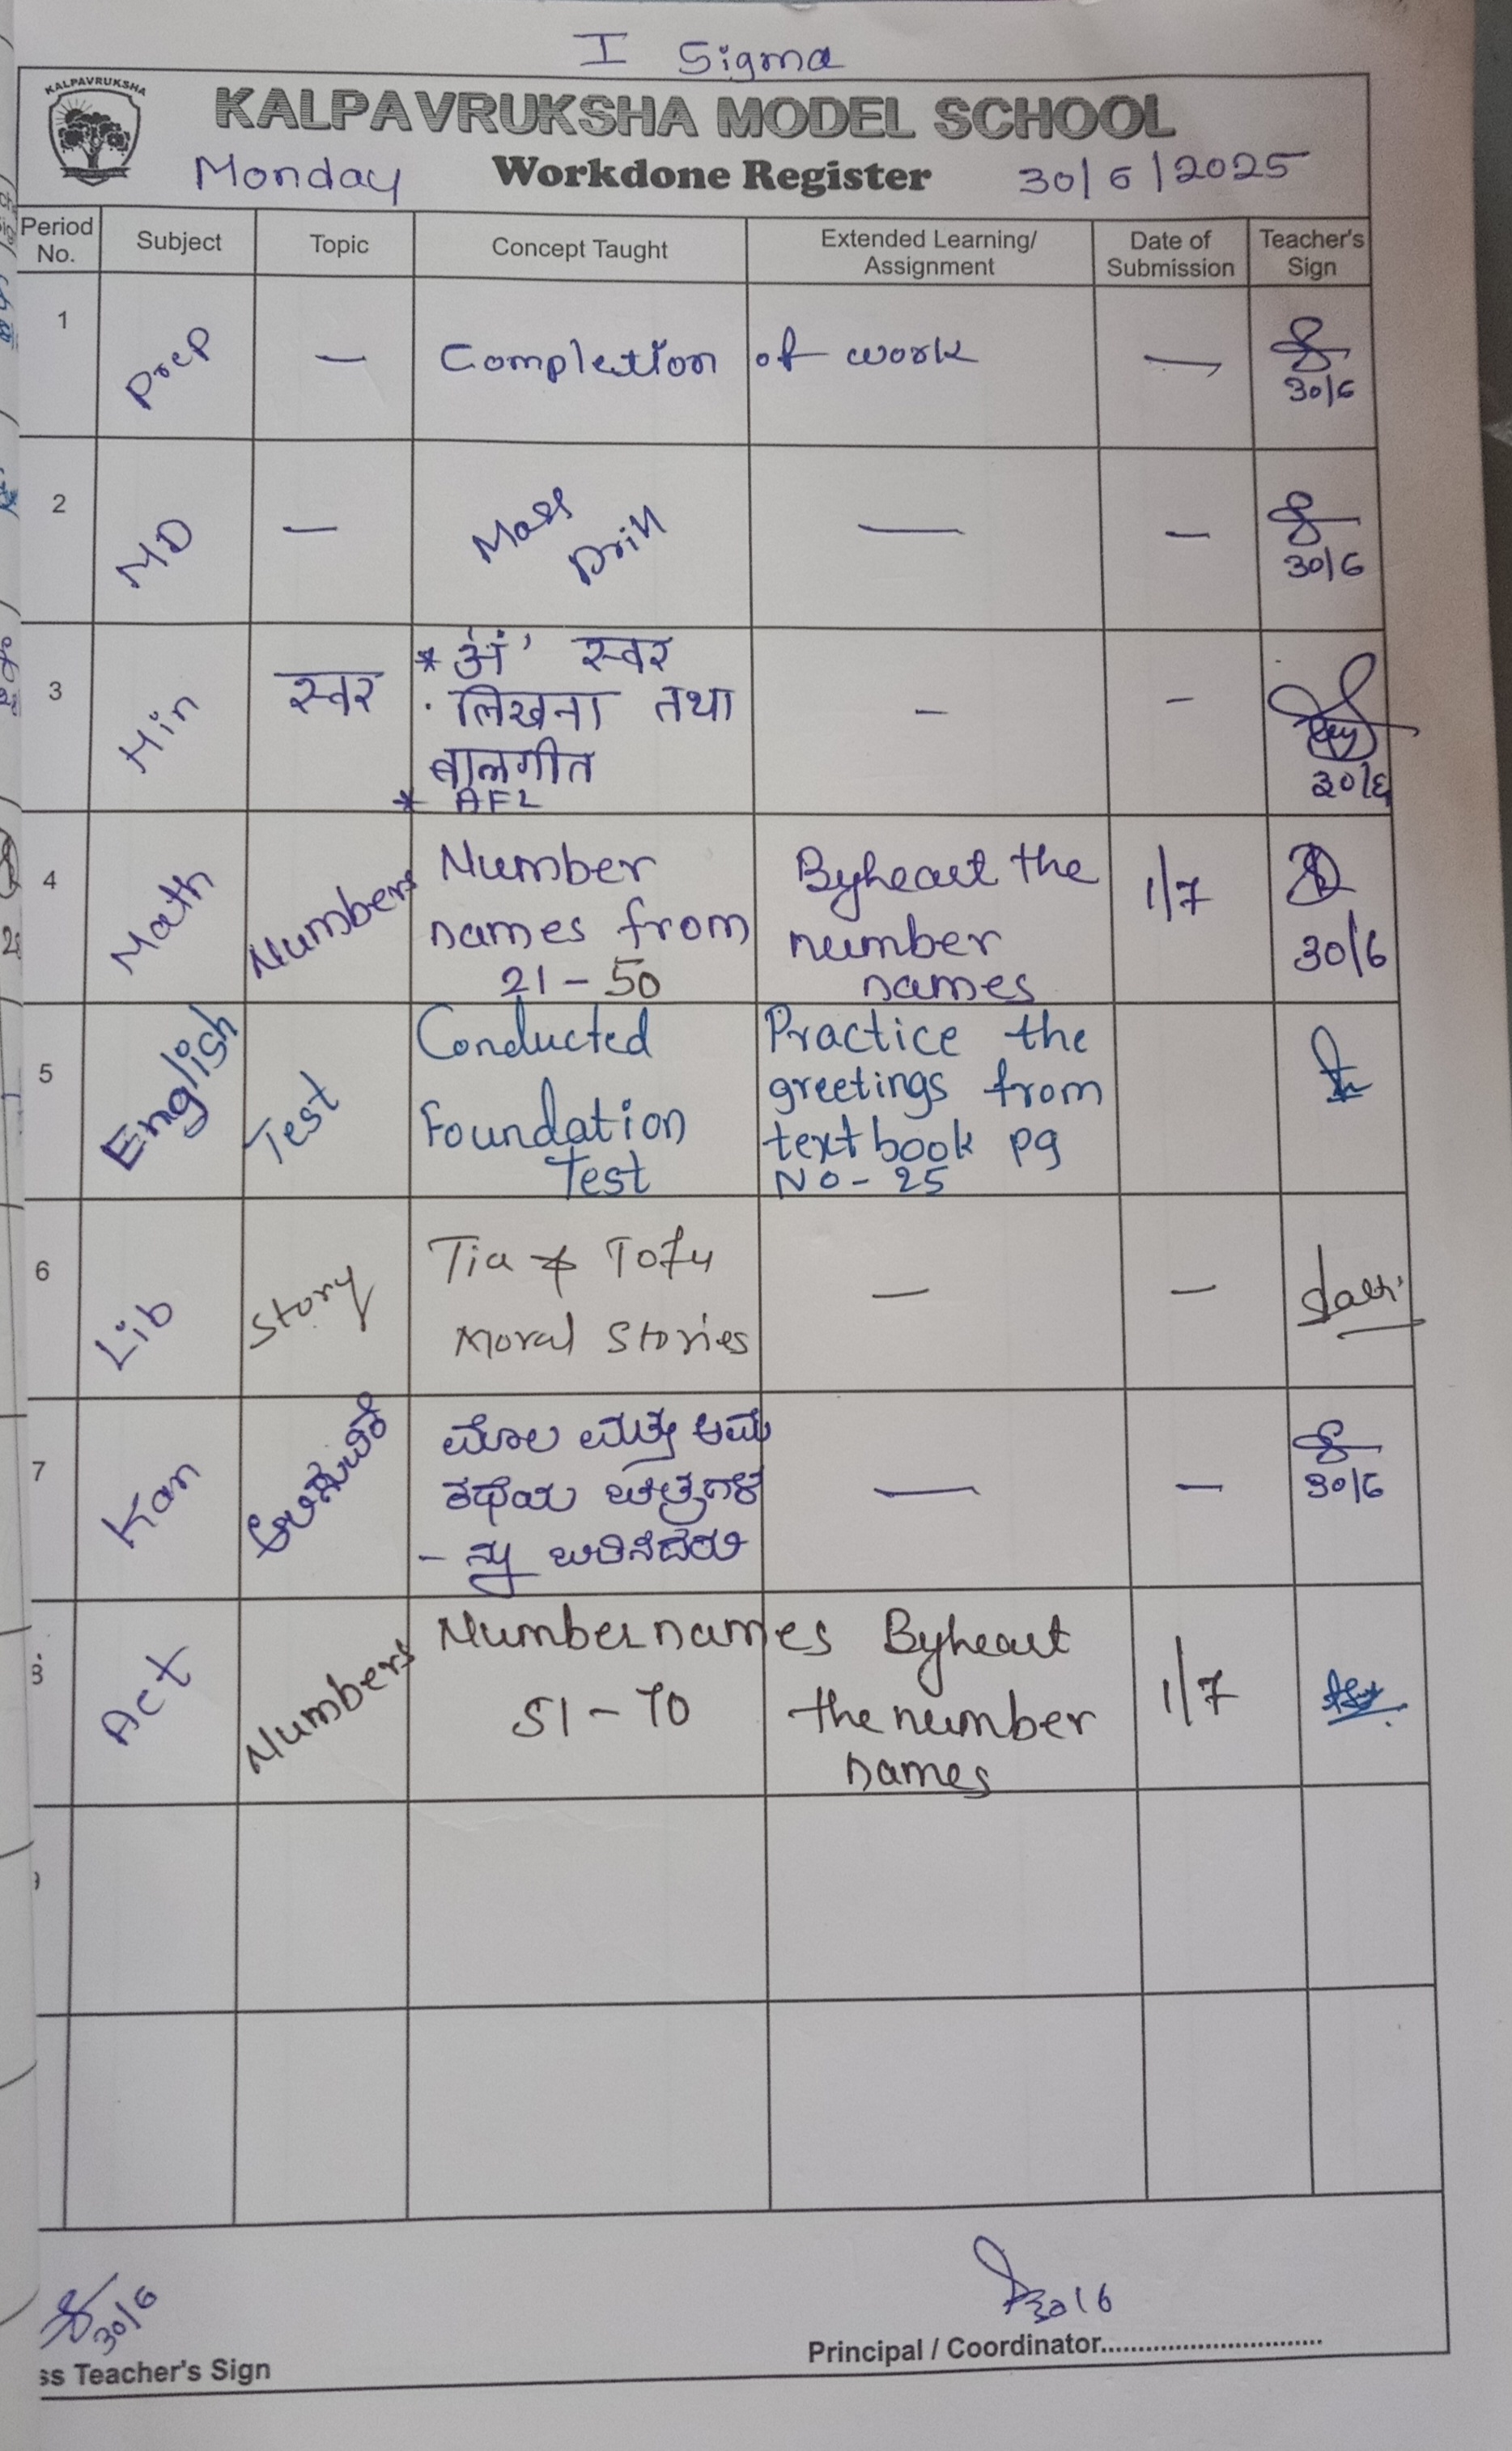 I Sigma
KALPAVRUKSHA
KALPAVRUKSHA MODEL SCHOOL
Monday Workdone Register 30/6/2025
Period No. Subject Topic Concept Taught Extended Learning/ Assignment Date of Submission Teacher's Sign
1 Prep — Completion of work —
30/6
2 MD — Mass Drill — —
30/6
3 Hin स्वर * 'अं' स्वर - -
· लिखना तथा
बालगीत
* AFL
30/6
4 Math Numbers Number Byheart the 1/7
names from number
21 - 50 names
30/6
5 English Test Conducted Practice the
Foundation greetings from
Test textbook pg
No - 25
6 Lib Story Tia & Tofu — —
Moral Stories
7 Kan ಆಲಿಸುವಿಕೆ ಮೊಲ ಮತ್ತು ಆಮೆ — —
ಕಥೆಯ ಚಿತ್ರಗಳ
- ನ್ನು
30/6
8 Act Numbers Number names Byheart 1/7
51 - 70 the number
names
30/6
30/6
ss Teacher's Sign
Principal / Coordinator..............................